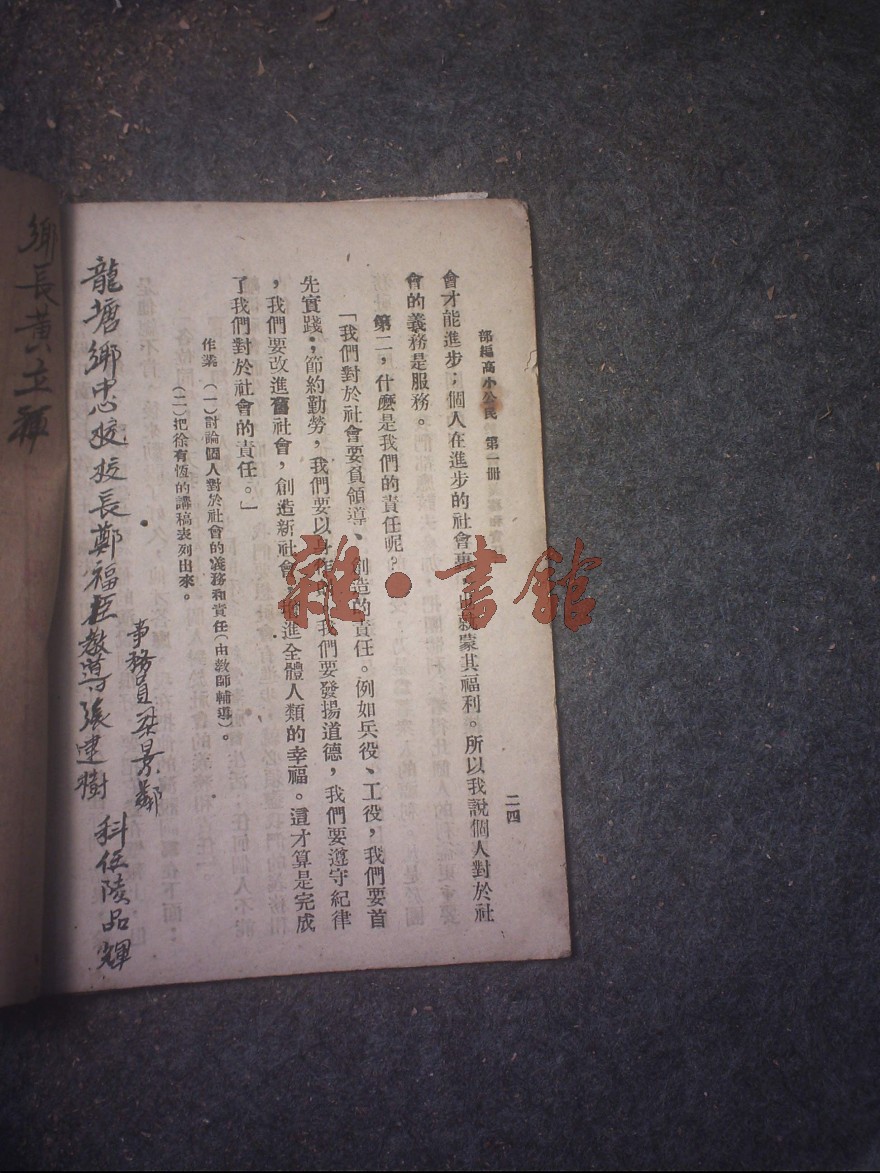 部編高小公民　第一冊
二四
會才能進步；個人在進步的社會裏，也就蒙其福利。所以我說個人對於社
會的義務是服務。
第二，什麼是我們的責任呢？
「我們對於社會要負領導、創造的責任。例如兵役、工役，我們要首
先實踐；節約勤勞，我們要以身作則，我們要發揚道德，我們要遵守紀律
，我們要改進舊社會，創造新社會，增進全體人類的幸福。這才算是完成
了我們對於社會的責任。」
作業　（一）討論個人對於社會的義務和責任（由教師輔導）。
（二）把徐有恆的講稿表列出來。
事務員 景鄰
科任陵品輝
龍塘鄉忠校校長鄭福 教導張建樹
鄉長黃立
雜·書館